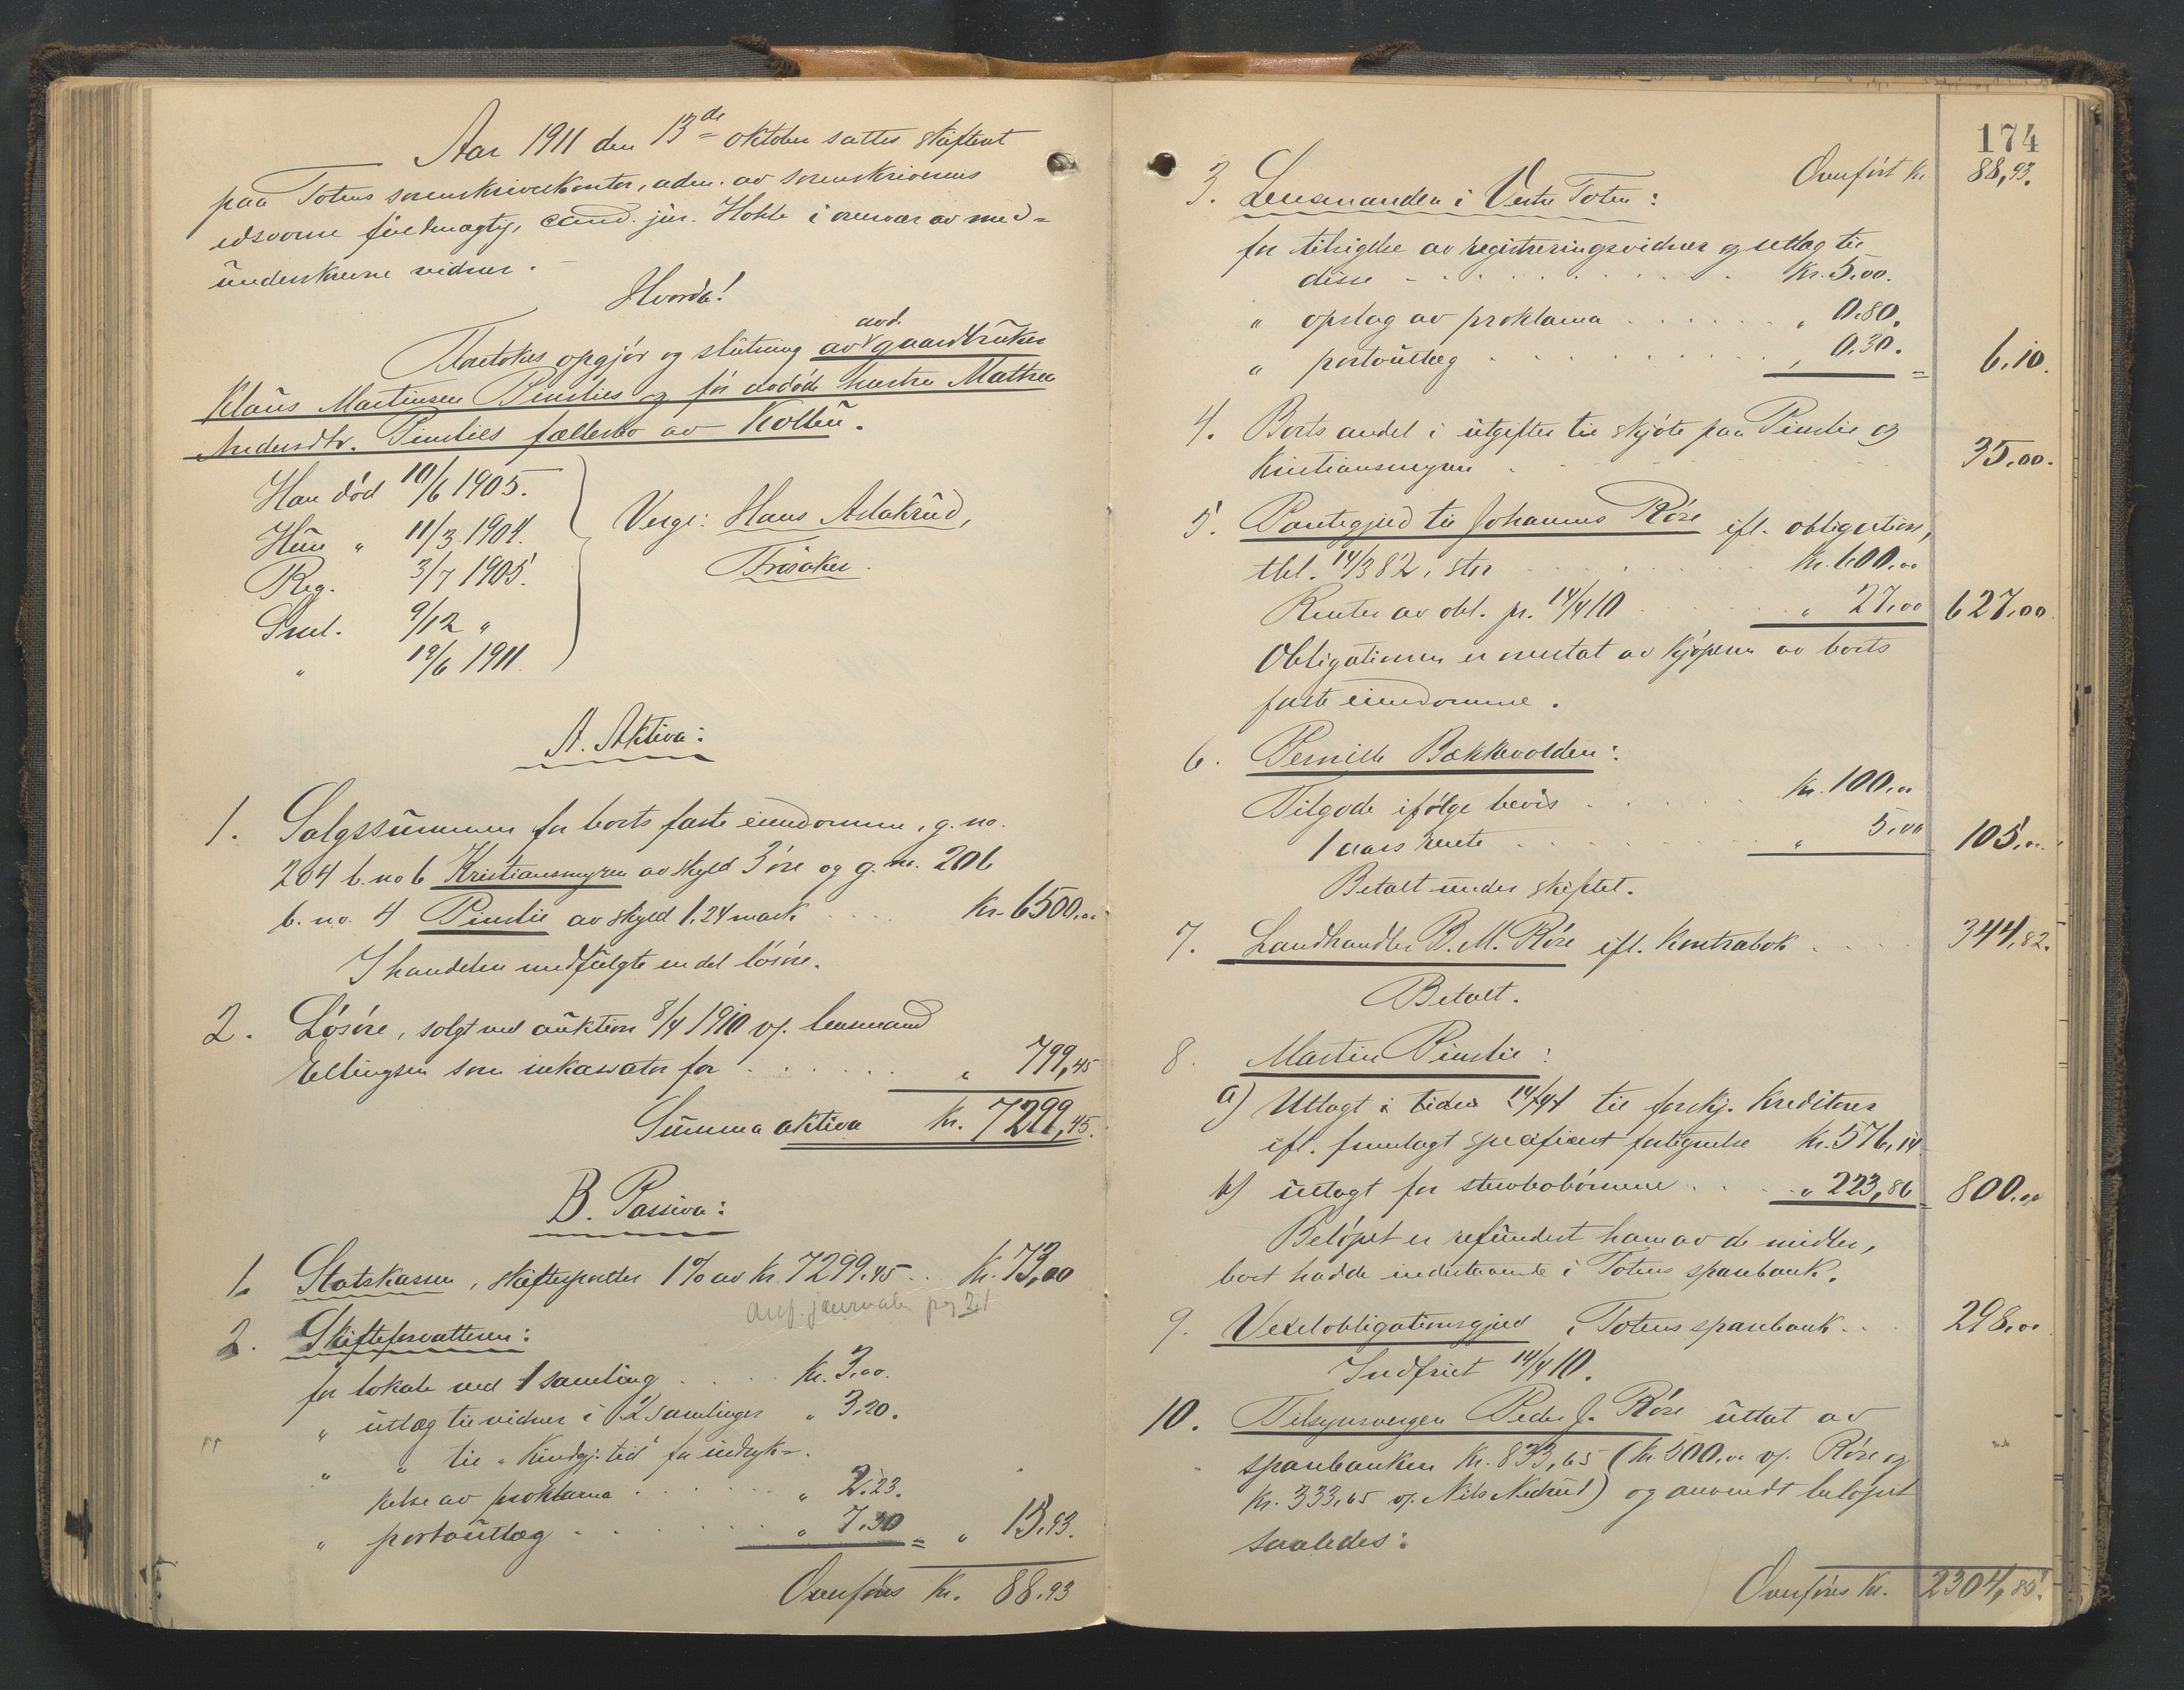 Aar 1911 den 13de oktober sattes skifteret
paa Totens sorenskriverkontor, adm. av sorenskriverens
edsvorne fuldmægtig, cand. jur. Holste i overvær av med-
underskrevne vidner.
Hvorda!
Foretokes opgjør og slutning av avd. gaardbruker
Klaus Martinsen Pinslies og før avdøde hustru Mathea
Andersdtr. Pinslies fællesbo av Kolbu.
Han død 10/6 1905.
Hun " 11/3 1904.
Reg. 3/7 1905.
Sml. 9/12 "
" 19/6 1911.
Verge: Hans Aslakrud,
Trøsaker.
A. Aktiva:
1. Salgssummen for boets faste eiendomme, g. no.
204 b. no 6 Kristiansmyren av skyld 3 øre og g. no. 206
b. no. 4 Pinslie av skyld 1.24 mark .... Kr. 6500,00
I handelen medfulgte en del løsøre.
2. Løsøre, solgt ved auktion 8/4 1910 v/ lensmand
Ellingsen som inkassator for ...... " 799,45
Summa aktiva Kr. 7299,45.
B. Passiva:
1. Statskassen, skiftesportler 1% av Kr. 7299.45 .. Kr. 73,00
anf. journalen pag 21
2. Skifteforvalteren:
for lokale ved 1 samling .... Kr. 3.00.
" utlæg til vidner i 2 samlinger " 3.20.
" " til "Kundgj. tid" for indryk-
kelse av proklama ...... " 2.23.
" portoutlæg ...... " 7.30 = " 15.93.
Overføres Kr. 88.93
174
Overført Kr. 88,93.
3. Lensmanden i Vestre Toten:
for tilsigelse av registreringsvidner og utlæg til
disse ........ Kr. 5.00.
" opslag av proklama ...... " 0.80.
" portoutlæg ........ " 0.30. = 6.10.
4. Boets andel i utgifter til skjøte paa Pinslie og
Kristiansmyren ........ 35.00.
5. Pantegjeld til Johannes Røise ifl. obligation,
tbl. 14/3 82, stor ..... Kr. 600,00
Renter av obl. pr. 14/4 10 ..... " 27,00 627,00.
Obligationen er overtat av kjøperen av boets
faste eiendomme.
6. Pernille Bækkevolden:
Tilgode ifølge bevis ..... Kr. 100,00
1 aars rente ........ " 5,00 105,00.
Betalt under skiftet.
7. Landhandler B. M. Røise ifl. kontrabok .... 344,82.
Betalt.
8. Martin Pinslie:
a) Utlagt i tiden til forskj. kreditorer
ifl. fremlagt specificert fortegnelse Kr. 576,14
b) utlagt for sterbobørnene ... " 223,86 = 800,00
Beløpet er refundert ham av de midler,
boet hadde indestaaende i Totens sparebank.
9. Vexelobligationsgjeld i Totens sparebank .. 298,00
Indfriet 14/4 10.
10. Tilsynsvergen Peder J. Røise uttat av
sparebanken Kr. 833,65 (Kr. 500,00 v/ Røise og
Kr. 333,65 v/ Nils Nedrud) og anvendt beløpet
saaledes:
Overføres Kr. 2304,85.